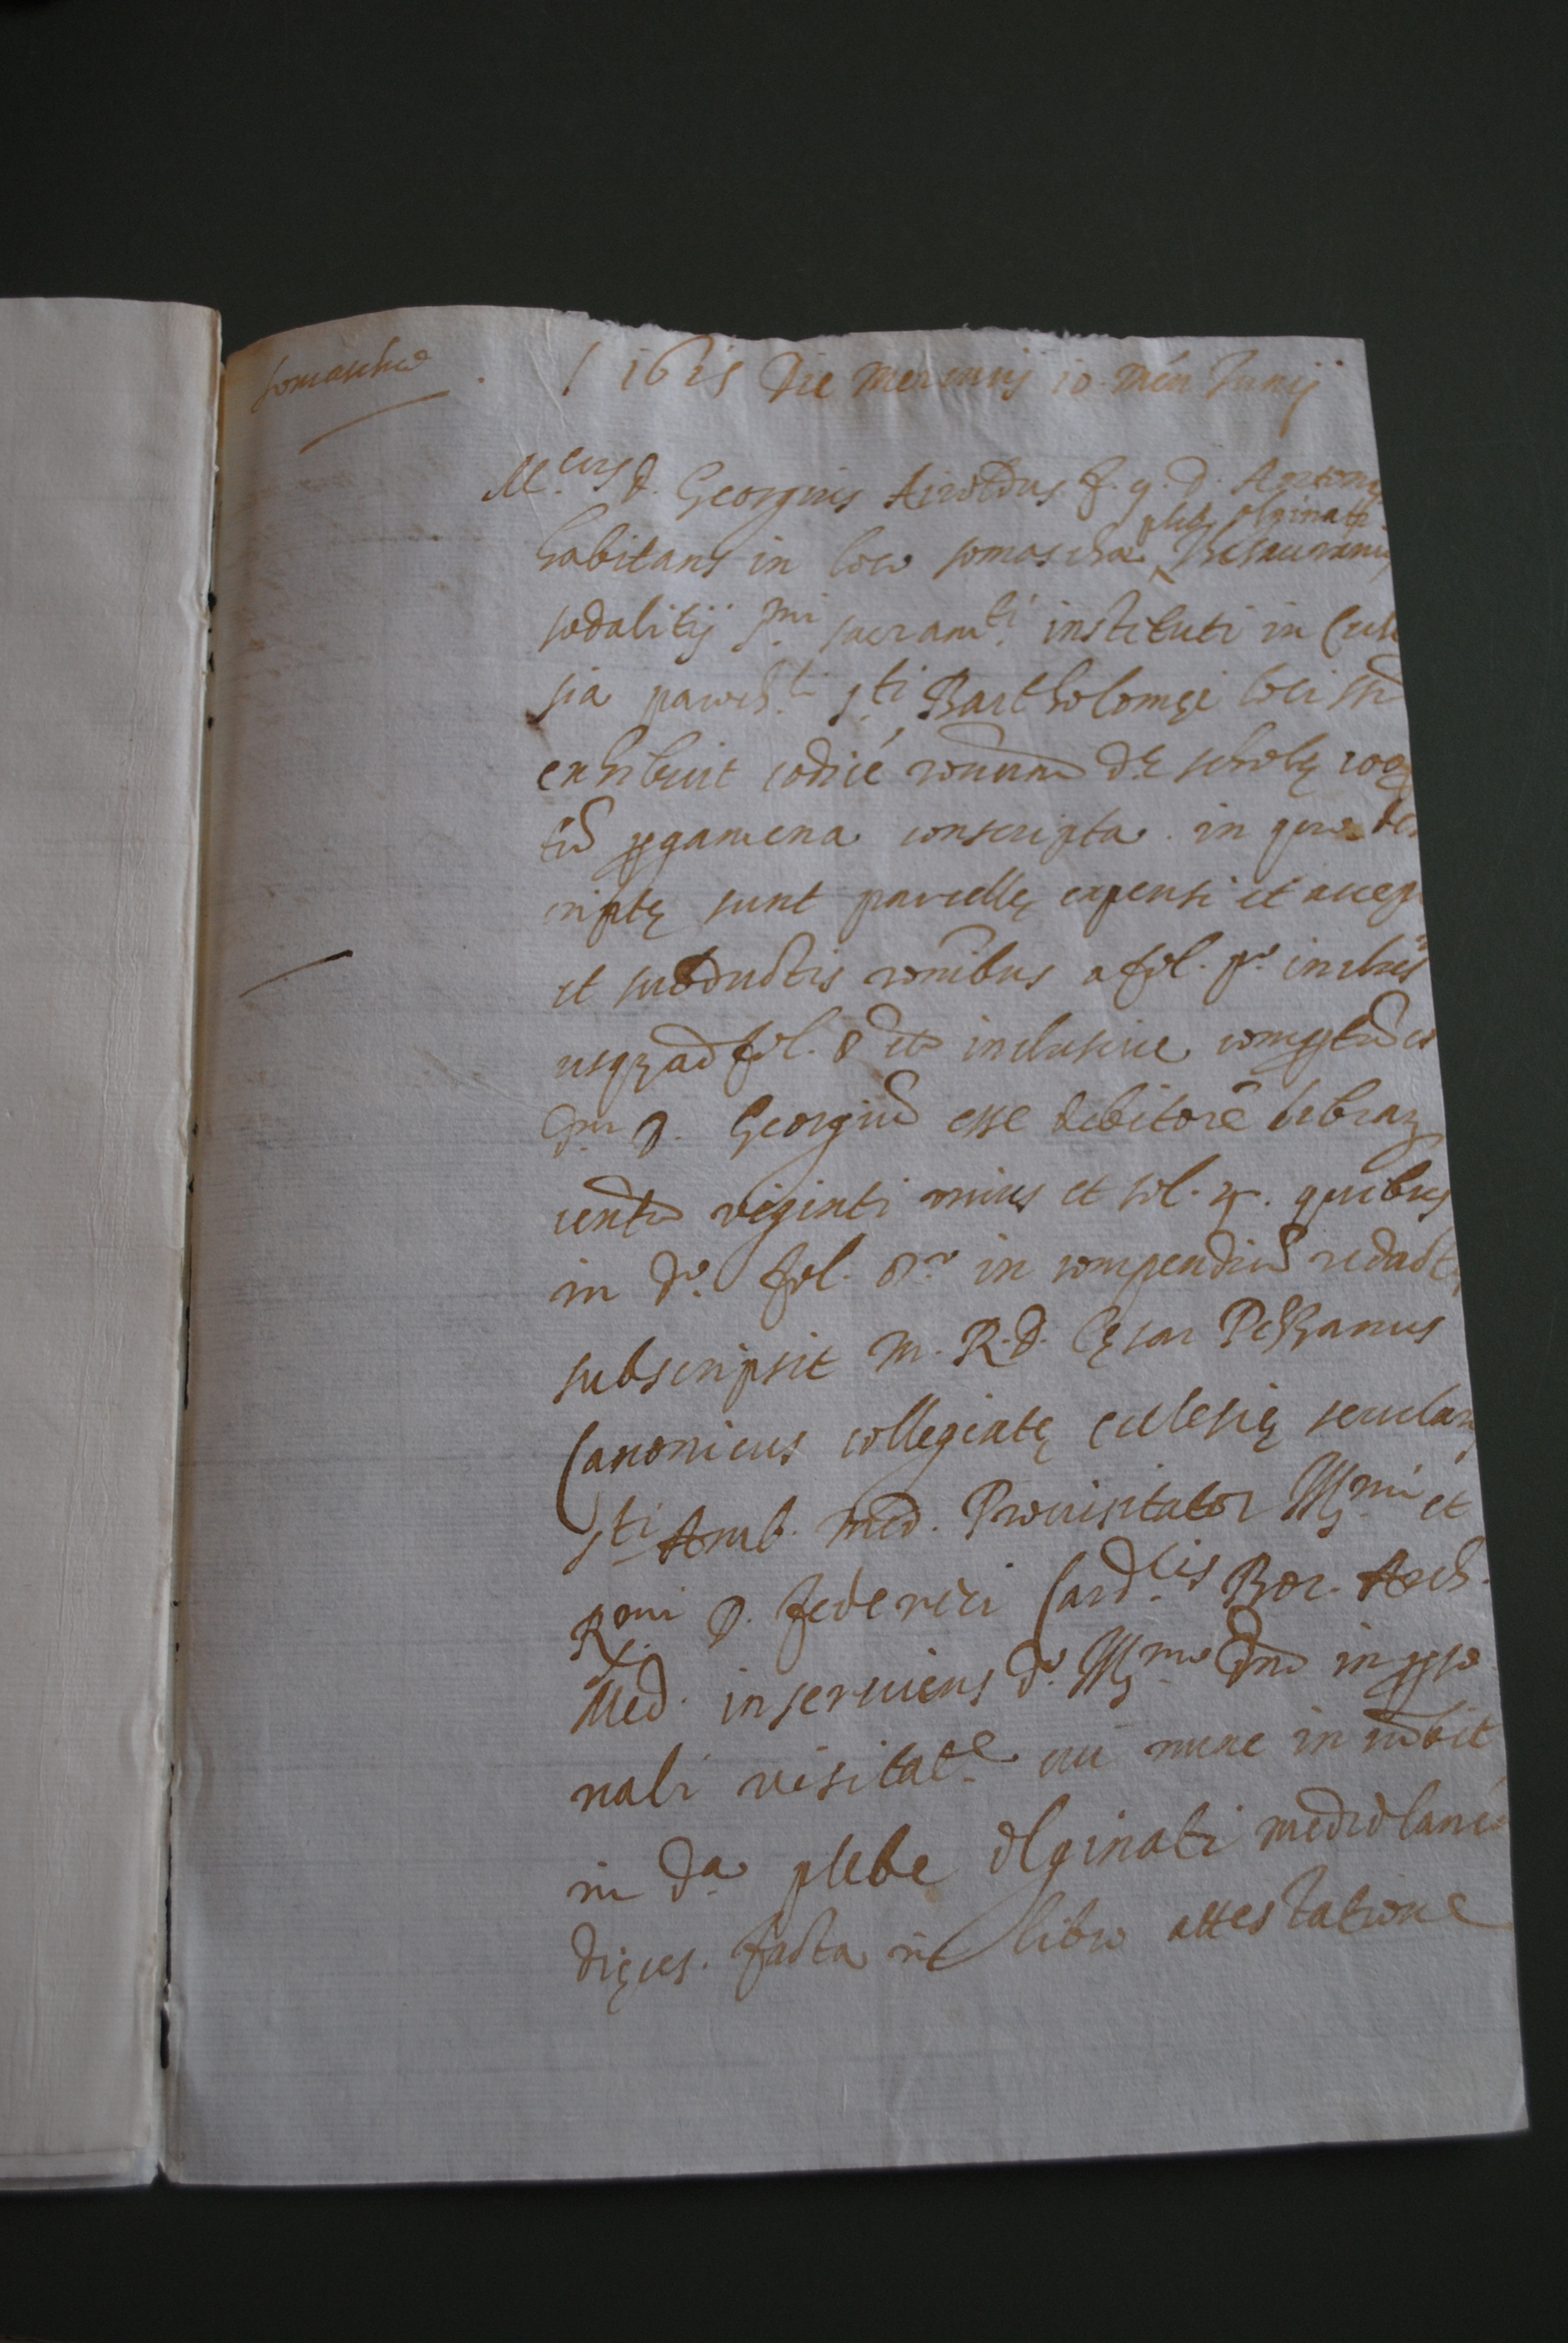 somascha
1615 Die Mercurij 10 mén Junij
M.cus D. Georgius Airoldus f. q. D. Antonij
plebis olginati
habitans in loco somascha Thesaurarius
sodalitij s.mi sacram.ti instituti in Eccle
sia paroch.li s.ti Bartholomęi loci
exhibuit codicé dę scholę
pgamena conscripta in quo des
criptę sunt parcellę expensi et accepti
et subductis ronibus a fol. p.o inclus
usq ad fol. 8 inclusive
D. Georgiū esse debitorē librarz
centū viginti unius et sol. quibus
in d.o fol. 8.o in compendiū redact
subscripsit M. R. D. Cęsar Pezzanus
Canonicus collegiatę ecclesię secularis
s.ti Amb. Med. Provisitator Ill.mi et
R.mi D. Federici Card.lis Bor. Arch.
Med. inserviens d.o Ill.mo Dno in pso
nali visitat.e nunc incūbit
in d.a plebe Olginati mediolanēn
dięces. facta libro attestatione